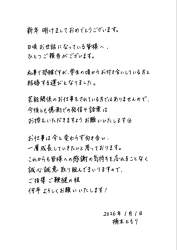 新年 明けましておめでとうございます。
日頃お世話になっている皆様へ、
ひとつご報告がございます。
私事で恐縮ですが、学生の頃からお付き合いしている方と
結婚する運びとなりました。
芸能関係のお仕事をされている方ではありませんので、
今後とも憶測での発信や詮索は
お控えいただきますようお願い致します
お仕事は今と変わらず向き合い、
一層成長していきたいと思っております。
これからも皆様への感謝の気持ちを忘れることなく
誠心誠意 取り組んでまいりますので、
ご指導ご鞭撻の程
何卒よろしくお願いいたします！
2026年1月1日